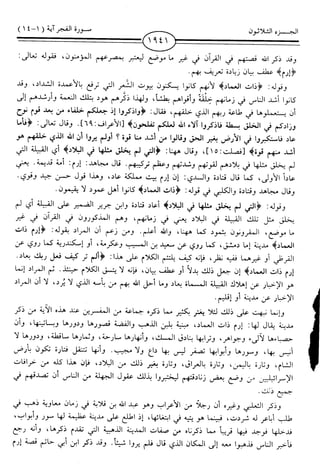 الجـــزء الثلاثـــون
سورة الفجر آية (١-١٤)
١٩٤١
وقد ذكر الله قصتهم في القرآن في غير ما موضع ليعتبر بمصرعهم المؤمنون، فقوله تعالى:
﴿إرم﴾ عطف بيان زيادة تعريف بهم.
وقوله: ﴿ذات العماد﴾ لأنهم كانوا يسكنون بيوت الشعر التي ترفع بالأعمدة الشداد، وقد
كانوا أشد الناس في زمانهم خِلْقَةً وأقواهم بطشًا، ولهذا ذكّرهم هود بتلك النعمة وأرشدهم إلى
أن يستعملوها في طاعة ربهم الذي خلقهم، فقال: ﴿واذكروا إذ جعلكم خلفاء من بعد قوم نوح
وزادكم في الخلق بسطة فاذكروا آلاء الله لعلكم تفلحون﴾ [الأعراف: ٦٩]. وقال تعالى: ﴿فأما
عاد فاستكبروا في الأرض بغير الحق وقالوا من أشد منا قوة أولم يروا أن الله الذي خلقهم هو
أشد منهم قوة﴾ [فصلت: ١٥]، وقال هاهنا: ﴿التي لم يخلق مثلها في البلاد﴾ أي القبيلة التي
لم يخلق مثلها في بلادهم لقوتهم وشدتهم وعظم تركيبهم. قال مجاهد: إرم: أمة قديمة. يعني
عادًا الأولى، كما قال قتادة والسدي: إن إرم بيت مملكة عاد، وهذا قول حسن جيد وقوي.
وقال مجاهد وقتادة والكلبي في قوله: ﴿ذات العماد﴾ كانوا أهل عمود لا يقيمون.
وقوله: ﴿التي لم يخلق مثلها في البلاد﴾ أعاد قتادة وابن جرير الضمير على القبيلة أي لم
يخلق مثل تلك القبيلة في البلاد يعني في زمانهم، وهم المذكورون في القرآن في غير
ما موضع، المقرونون بثمود كما هاهنا، والله أعلم. ومن زعم أن المراد بقوله: ﴿إرم ذات
العماد﴾ مدينة إما دمشق، كما روي عن سعيد بن المسيب وعكرمة، أو إسكندرية كما روي عن
القرظي أو غيرهما ففيه نظر، فإنه كيف يلتئم الكلام على هذا: ﴿ألم تر كيف فعل ربك بعاد.
إرم ذات العماد﴾ إن جعل ذلك بدلًا أو عطف بيان، فإنه لا يتسق الكلام حينئذ. ثم المراد إنما
هو الإخبار عن إهلاك القبيلة المسماة بعاد وما أحل الله بهم من بأسه الذي لا يُرد، لا أن المراد
الإخبار عن مدينة أو إقليم.
وإنما نبهت على ذلك لئلا يغتر بكثير مما ذكره جماعة من المفسرين عند هذه الآية من ذكر
مدينة يقال لها: إرم ذات العماد، مبنية بلبن الذهب والفضة قصورها ودورها وبساتينها، وأن
حصباءها لآلئ وجواهر، وترابها بنادق المسك، وأنهارها سارحة، وثمارها ساقطة، ودورها لا
أنيس بها، وسورها وأبوابها تصفر ليس بها داع ولا مجيب. وأنها تنتقل فتارة تكون بأرض
الشام، وتارة باليمن، وتارة بالعراق، وتارة بغير ذلك من البلاد، فإن هذا كله من خرافات
الإسرائيليين من وضع بعض زنادقتهم ليختبروا بذلك عقول الجهلة من الناس أن تصدقهم في
جميع ذلك.
وذكر الثعلبي وغيره أن رجلًا من الأعراب وهو عبد الله بن قلابة في زمان معاوية ذهب في
طلب أباعر له شردت، فبينما هو يتيه في ابتغائها، إذ اطلع على مدينة عظيمة لها سور وأبواب،
فدخلها فوجد فيها قريبًا مما ذكرناه من صفات المدينة الذهبية التي تقدم ذكرها، وأنه رجع
فأخبر الناس فذهبوا معه إلى المكان الذي قال فلم يروا شيئًا. وقد ذكر ابن أبي حاتم قصة إرم